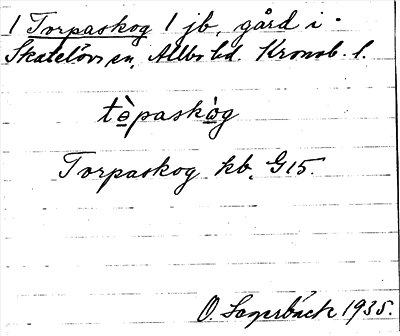 1 Torpaskog 1 jb, gård i
Skatelövs sn, Allbo hd. Kronob. l.
tè̲paskò̲g
Torpaskog kb. G15.
O. Sagerbäck 1935.